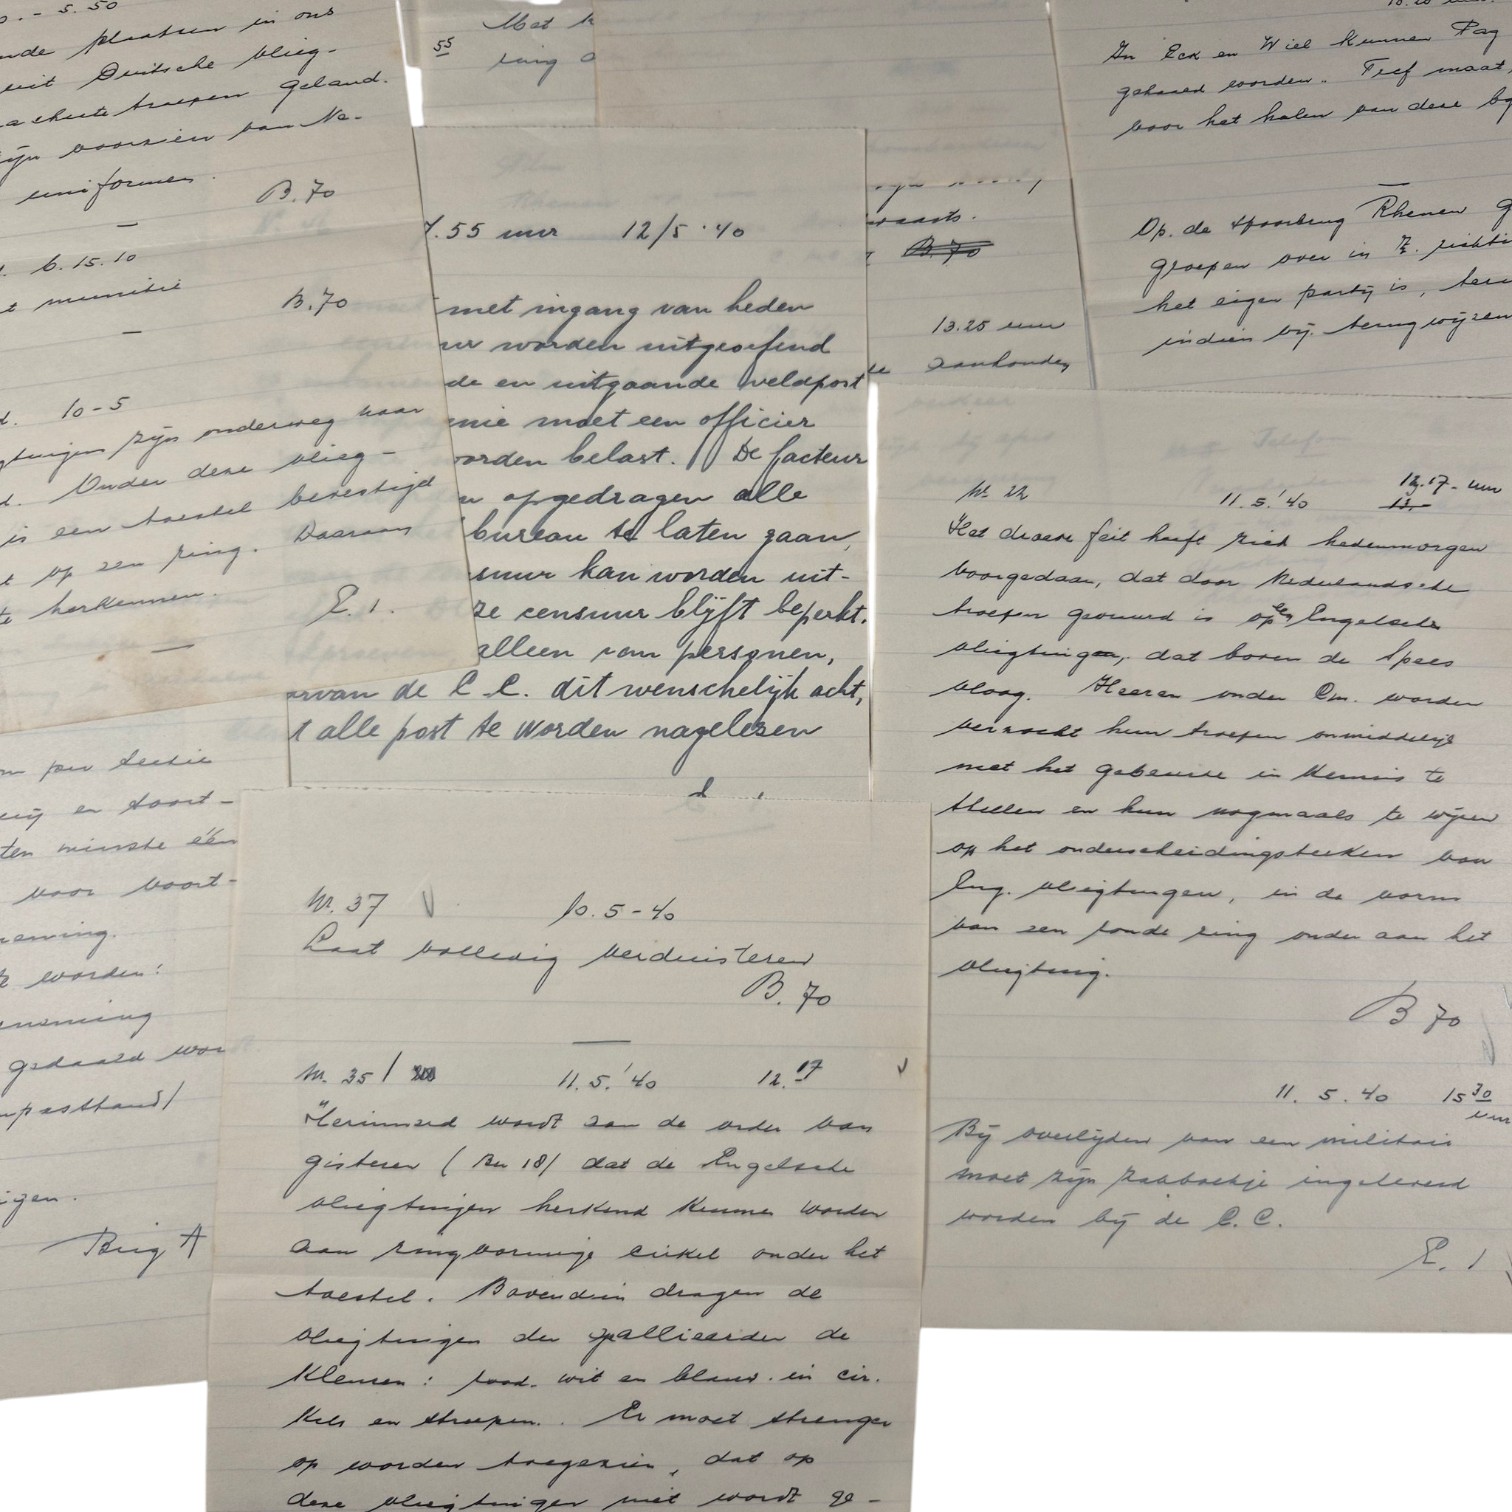 0. - 5.50
nde plaatsen in ons
uit Duitsche vlieg-
achute troepen geland.
zijn voorzien van Ne-
uniformen.
B. 70
6.15.10
munitie
B. 70
10-5
gtuigen zijn onderweg naar
d. Onder deze vlieg-
is een toestel bevestigd
t op een ring. Daaraan
te herkennen.
E. 1.
55
Met
ring
7.55 uur 12/5 '40
met ingang van heden
uur worden uitgeoefend
de en uitgaande veldpost
nie moet een officier
orden belast. De facteur
n opgedragen alle
bureau te laten gaan,
suur kan worden uit-
ze censuur blijft beperkt.
alleen van personen,
arvan de C.C. dit wenschelijk acht,
t alle post te worden nagelezen
waarts.
B. 70
13.25 uur
aanhouden
In Eck en Wiel kunnen
gehaald worden. Tref maat
voor het halen van deze
Op de spoorbrug Rhenen
groepen over in Z. richti
het eigen partij is,
indien bij terugwijzen
Nr. 22 11.5.'40 12.17 - uur
Het dwaze feit heeft zich hedenmorgen
voorgedaan, dat door Nederlandsche
troepen gevuurd is op een Engelsch
vliegtuig, dat boven de Spees
vloog. Heeren onder Cm. worden
verzocht hun troepen onmiddelijk
met het gebeurde in kennis te
stellen en hun nogmaals te wijzen
op het onderscheidingsteeken van
Eng. vliegtuigen, in de vorm
van een ronde ring onder aan het
vliegtuig.
B 70
11. 5. 40 15 30 uur
Bij overlijden van een militair
moet zijn zakboekje ingeleverd
worden bij de C.C.
E. 1
per sectie
en soort-
ten minste één
voor voort-
neming.
te worden:
gedaald wor
igen.
Brig A
Nr. 37 10. 5 - 40
Laat volledig verduisteren
B. 70
Nr. 35 / 11. 5.'40 12.17
Herinnerd wordt aan de order van
gisteren (Nr 18) dat de Engelsche
vliegtuigen herkend kunnen worden
aan ringvormige cirkel onder het
toestel. Bovendien dragen de
vliegtuigen der geallieerden de
kleuren: rood. wit en blauw. in cir-
kels en streepen. Er moet strenger
op worden toegezien, dat op
deze vliegtuigen niet wordt ge-